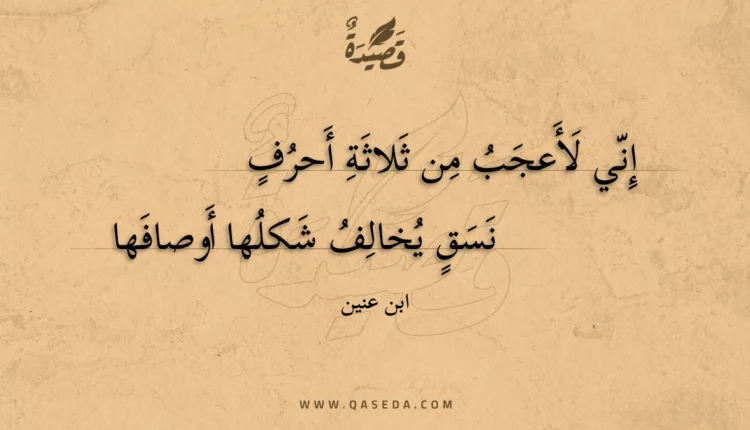 قَصِيْدَةٌ
إِنّي لَأَعجَبُ مِن ثَلاثَةِ أَحرُفٍ
نَسَقٍ يُخالِفُ شَكلُها أَوصافَها
ابن عنين
WWW.QASEDA.COM